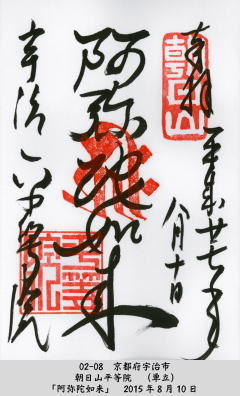 奉拝
朝日山
平成廿七年
八月十日
阿弥陀如来
宇治
平等院
02-08 京都府宇治市
朝日山平等院 (単立)
「阿弥陀如来」 2015年8月10日